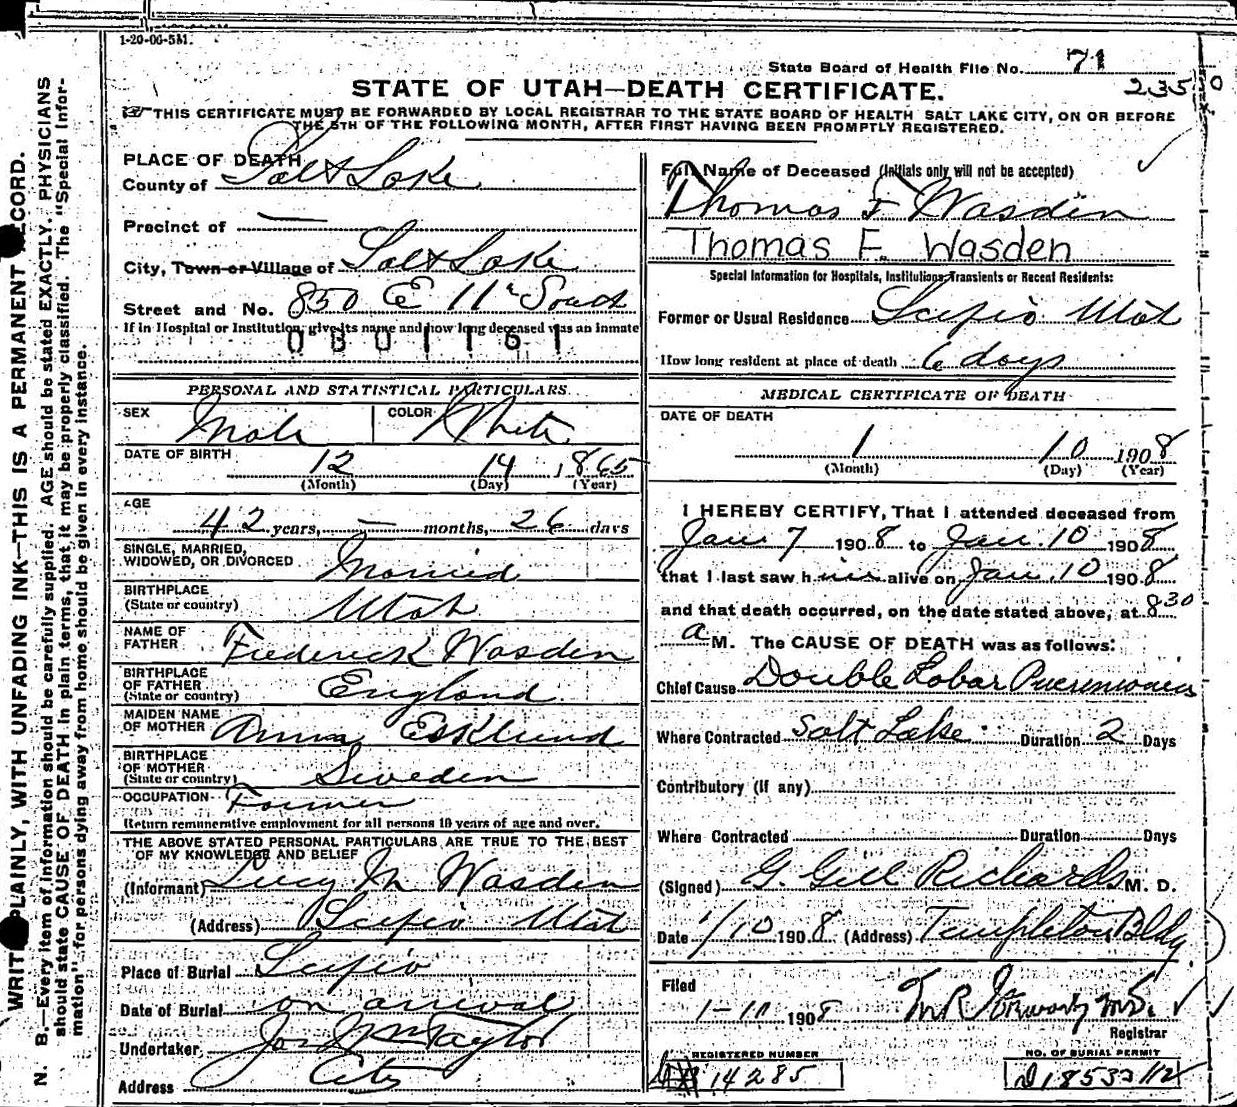 1-20-06-5M.
State Board of Health File No. 71
235 0
STATE OF UTAH—DEATH CERTIFICATE.
THIS CERTIFICATE MUST BE FORWARDED BY LOCAL REGISTRAR TO THE STATE BOARD OF HEALTH SALT LAKE CITY, ON OR BEFORE
THE 5TH OF THE FOLLOWING MONTH, AFTER FIRST HAVING BEEN PROMPTLY REGISTERED.
WRITE PLAINLY, WITH UNFADING INK—THIS IS A PERMANENT RECORD.
N. B.—Every item of information should be carefully supplied. AGE should be stated EXACTLY. PHYSICIANS
should state CAUSE OF DEATH in plain terms, that it may be properly classified. The "Special Infor-
mation" for persons dying away from home should be given in every instance.
PLACE OF DEATH
County of Salt Lake
Precinct of —
City, Town or Village of Salt Lake
Street and No. 850 E 11th South
If in Hospital or Institution, give its name and how long deceased was an inmate
0801161
PERSONAL AND STATISTICAL PARTICULARS
SEX Male COLOR White
DATE OF BIRTH
12 14 1865
(Month) (Day) (Year)
AGE
42 years, — months, 26 days
SINGLE, MARRIED,
WIDOWED, OR DIVORCED Married
BIRTHPLACE
(State or country) Utah
NAME OF
FATHER Frederick Wasden
BIRTHPLACE
OF FATHER
(State or country) England
MAIDEN NAME
OF MOTHER Anna Esklund
BIRTHPLACE
OF MOTHER
(State or country) Sweden
OCCUPATION Farmer
Return remunerative employment for all persons 10 years of age and over.
THE ABOVE STATED PERSONAL PARTICULARS ARE TRUE TO THE BEST
OF MY KNOWLEDGE AND BELIEF
(Informant) Lucy M Wasden
(Address) Scipio Utah
Place of Burial Scipio
Date of Burial on arrival
Undertaker, Jos Wm Taylor
Address City
Full Name of Deceased (Initials only will not be accepted)
Thomas F Wasden
Thomas F. Wasden
Special Information for Hospitals, Institutions, Transients or Recent Residents:
Former or Usual Residence Scipio Utah
How long resident at place of death 6 days
MEDICAL CERTIFICATE OF DEATH
DATE OF DEATH
1 10 1908
(Month) (Day) (Year)
I HEREBY CERTIFY, That I attended deceased from
Jan 7 1908 to Jan. 10 1908
that I last saw him alive on Jan. 10 1908
and that death occurred, on the date stated above, at 830
a M. The CAUSE OF DEATH was as follows:
Chief Cause Double Lobar Pneumonia
Where Contracted Salt Lake Duration 2 Days
Contributory (if any)
Where Contracted Duration Days
(Signed) G. Gill Richards M. D.
Date 1/10 1908 (Address) Templeton Bldg
Filed
1-11 1908
Registrar
REGISTERED NUMBER
14285
NO. OF BURIAL PERMIT